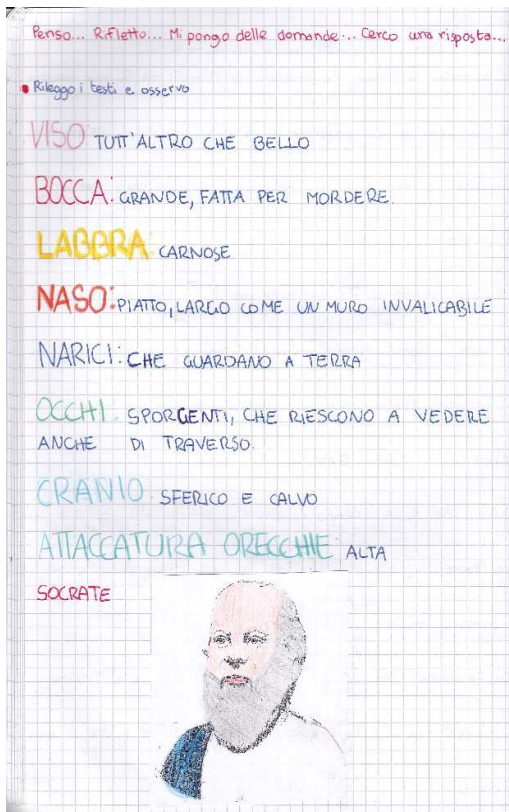 Penso... Rifletto... Mi pongo delle domande... Cerco una risposta...
Rileggo i testi e osservo
VISO: TUTT'ALTRO CHE BELLO
BOCCA: GRANDE, FATTA PER MORDERE.
LABBRA: CARNOSE
NASO: PIATTO, LARGO COME UN MURO INVALICABILE
NARICI: CHE GUARDANO A TERRA
OCCHI: SPORGENTI, CHE RIESCONO A VEDERE
ANCHE DI TRAVERSO.
CRANIO: SFERICO E CALVO
ATTACCATURA ORECCHIE ALTA
SOCRATE